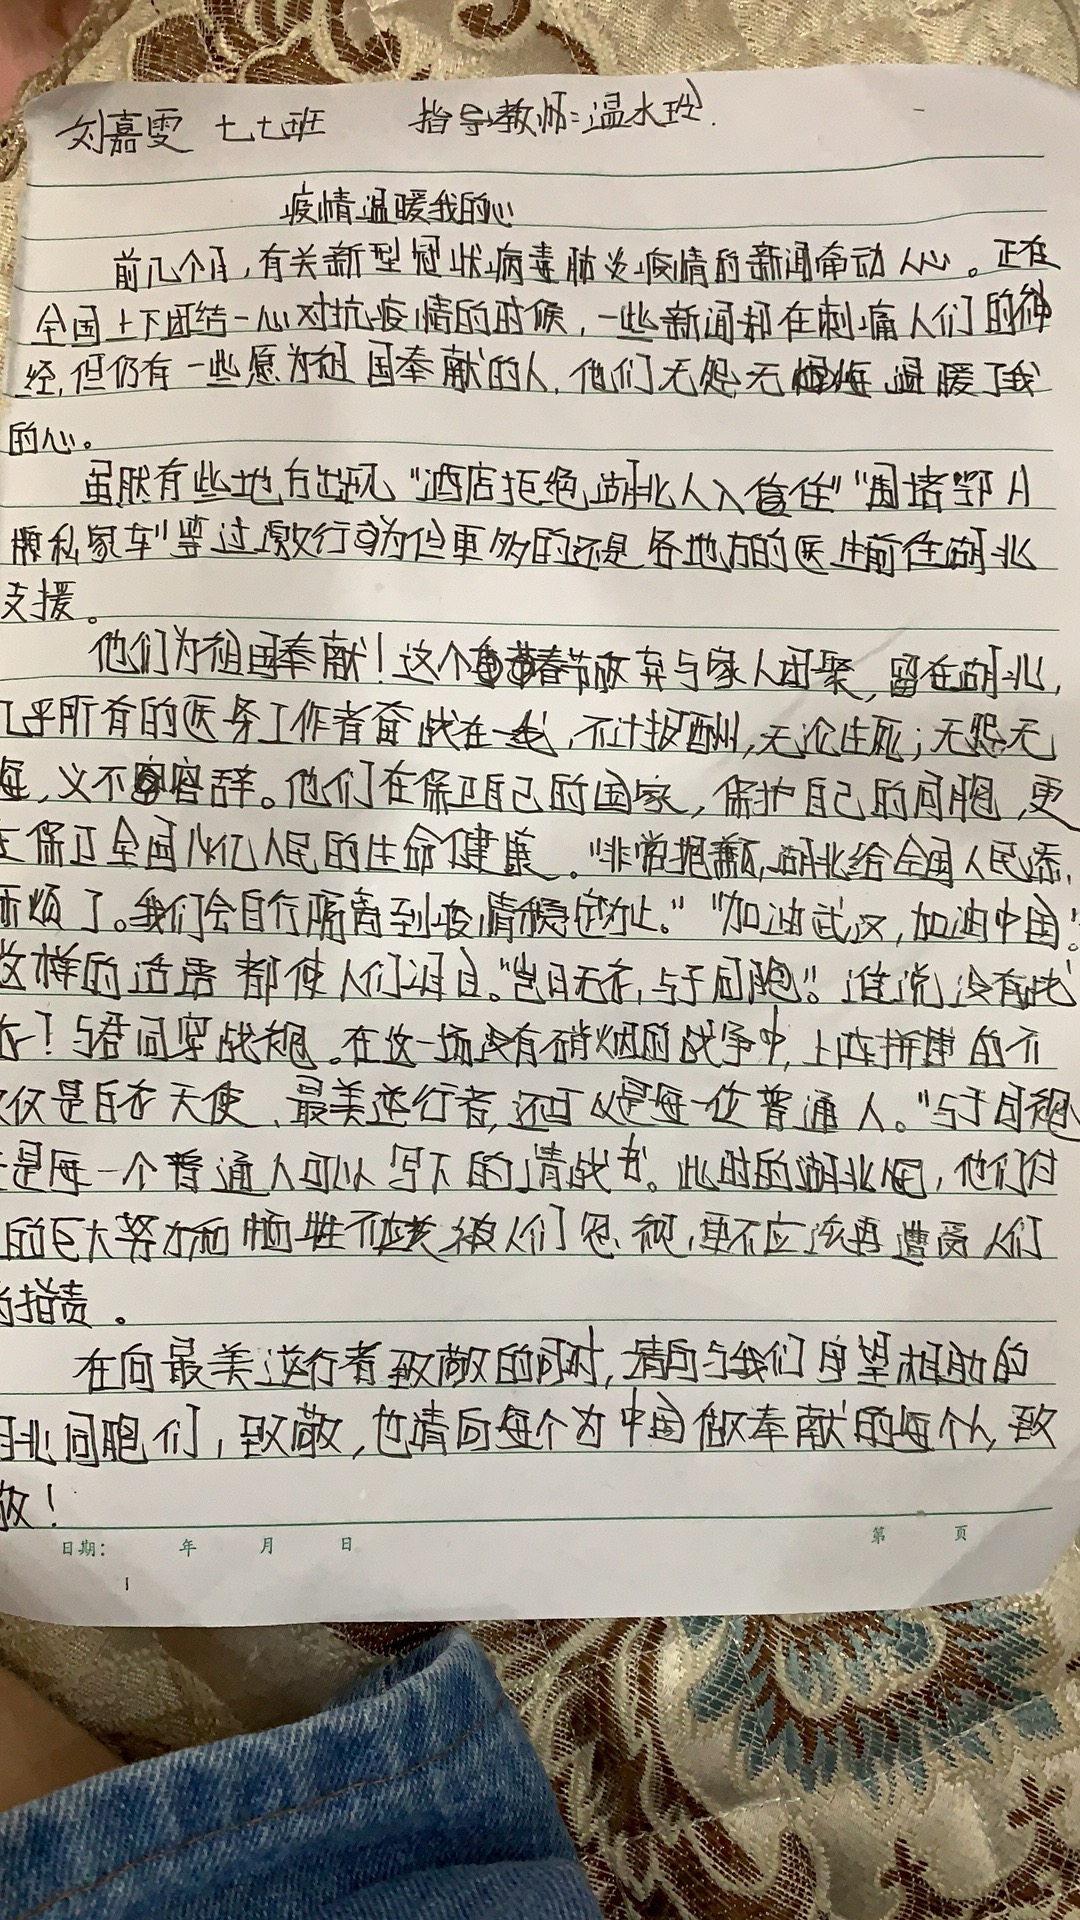 刘嘉雯 七七班 指导教师:温水玲.
疫情温暖我的心
前几个月,有关新型冠状病毒肺炎疫情的新闻牵动人心。正在
全国上下团结一心对抗疫情的时候,一些新闻却在刺痛人们的神
经,但仍有一些愿为祖国奉献的人,他们无怨无悔温暖了我
的心。
虽然有些地方出现“酒店拒绝湖北人入住”“围堵鄂A
牌私家车”等过激行为但更多的还是各地方的医生前往湖北
支援。
他们为祖国奉献!这个春节放弃与家人团聚,留在湖北,
几乎所有的医务工作者奋战在一线,不计报酬,无论生死;无怨无
悔,义不容辞。他们在保卫自己的国家,保护自己的同胞,更
在保卫全国14亿人民的生命健康。“非常抱歉,湖北给全国人民添
麻烦了。我们会自行隔离到疫情稳定为止。”“加油武汉,加油中国。”
这样的话语都使人们泪目。“岂曰无衣,与子同袍”。谁说没有战
衣!与君同穿战袍。在这一场没有硝烟的战争中,上阵拼搏的不
仅仅是白衣天使、最美逆行者,还可以是每一位普通人。“与子同袍”
是每一个普通人可以写下的请战书。此时的湖北,他们付
的巨大努力和牺牲不应该被人们忽视,更不应该再遭受人们
的指责。
在向最美逆行者致敬的同时,请向与我们守望相助的
湖北同胞们,致敬,也请向每个为中国做奉献的每个人,致
敬!
日期: 年 月 日 第 页